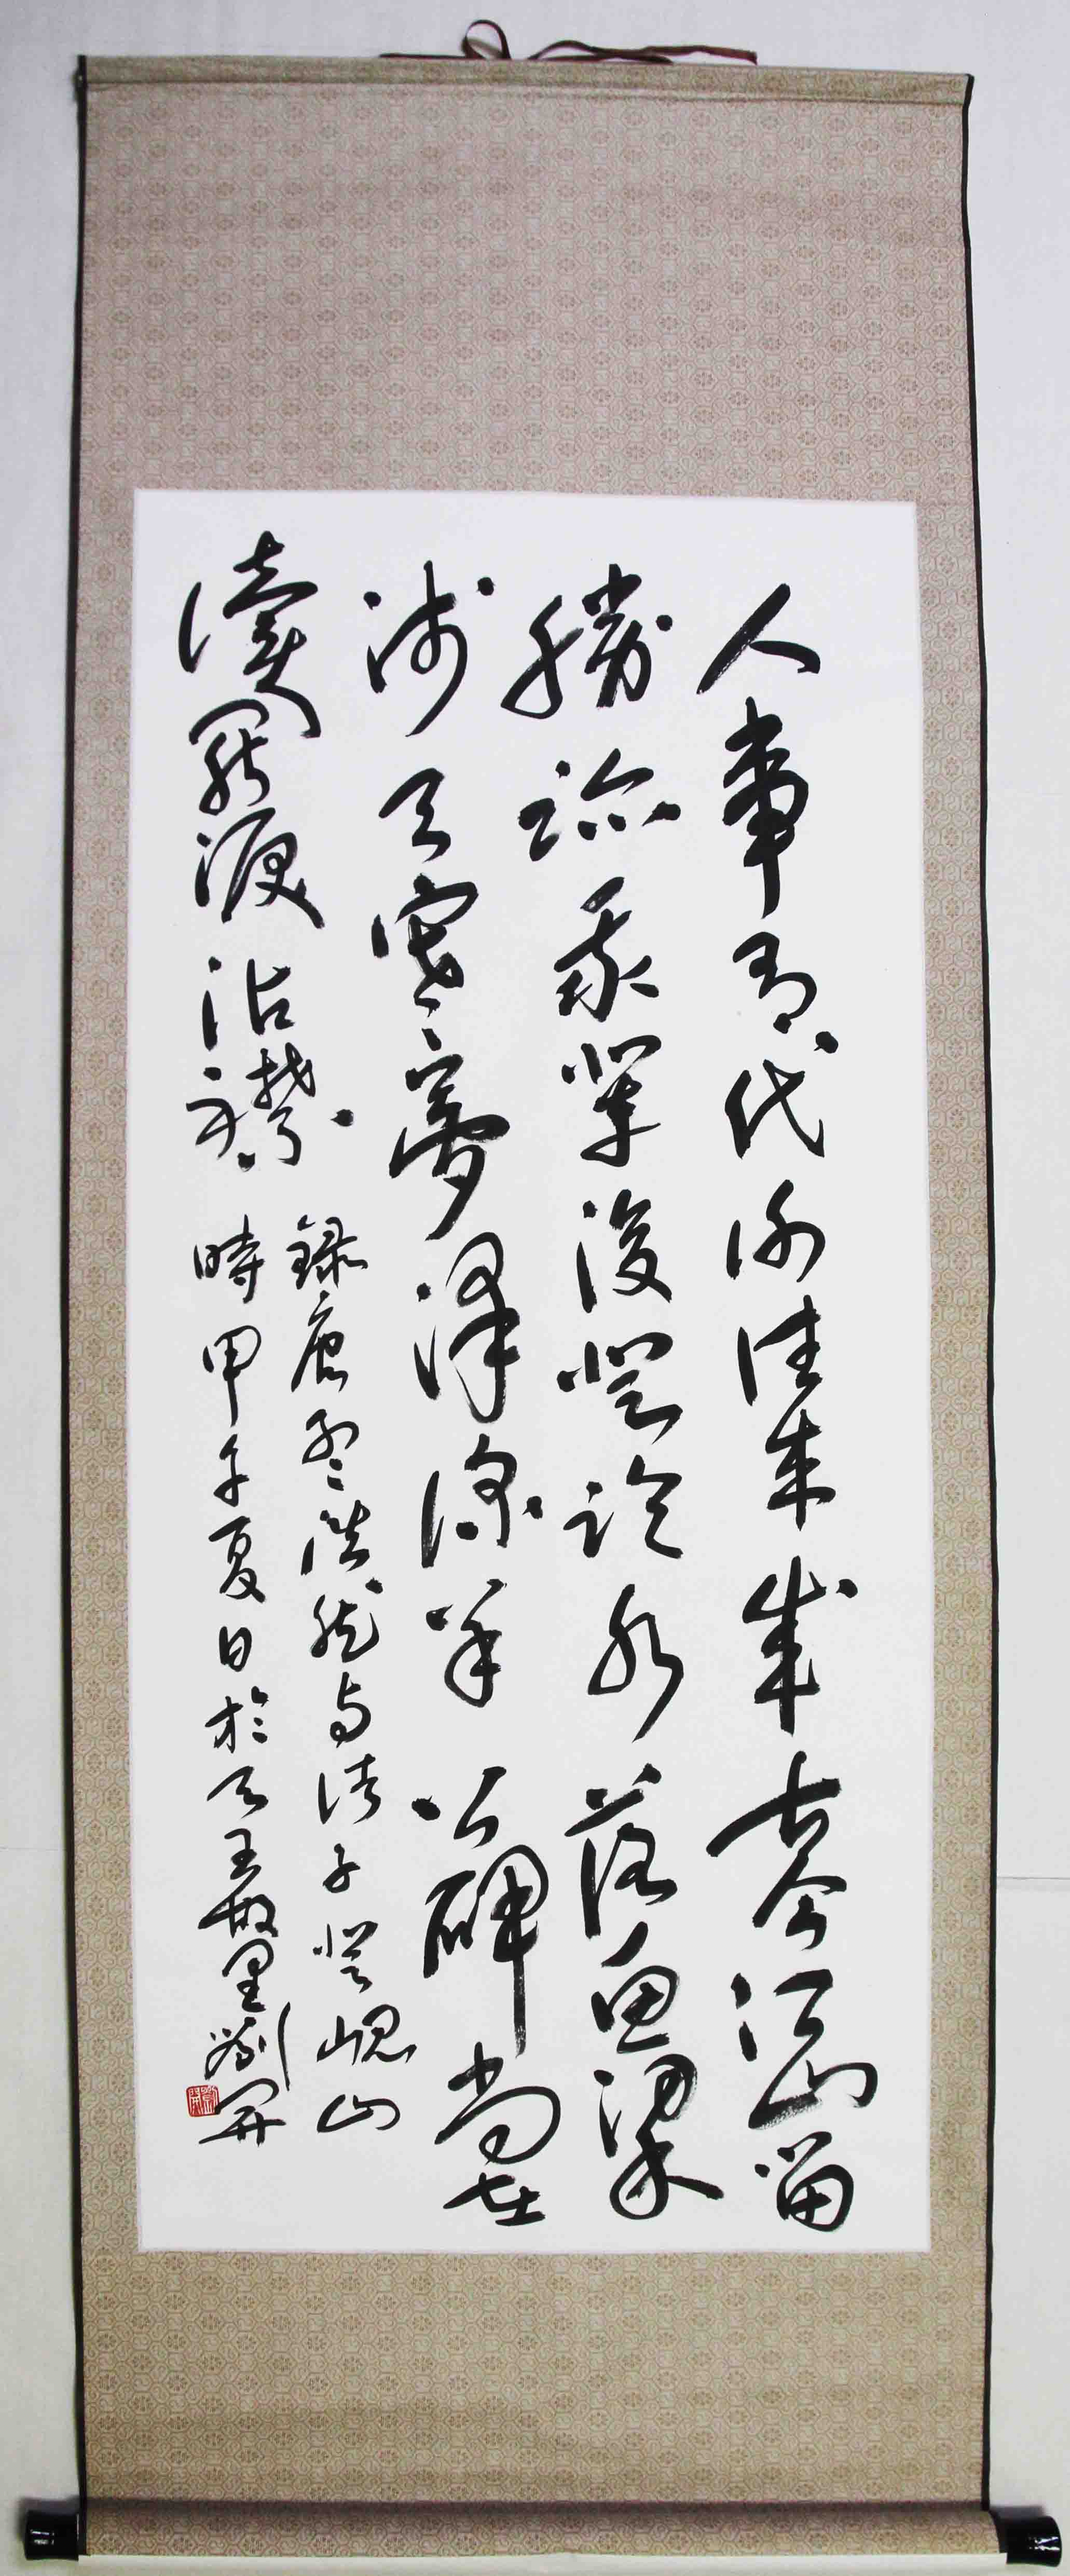 人事有代謝往來成古今江山留
勝跡我輩復登臨水落魚梁
淺天寒夢澤深羊公碑尚在
讀罷淚沾襟
錄唐孟浩然与諸子登峴山
時甲午夏日於天王里劉開